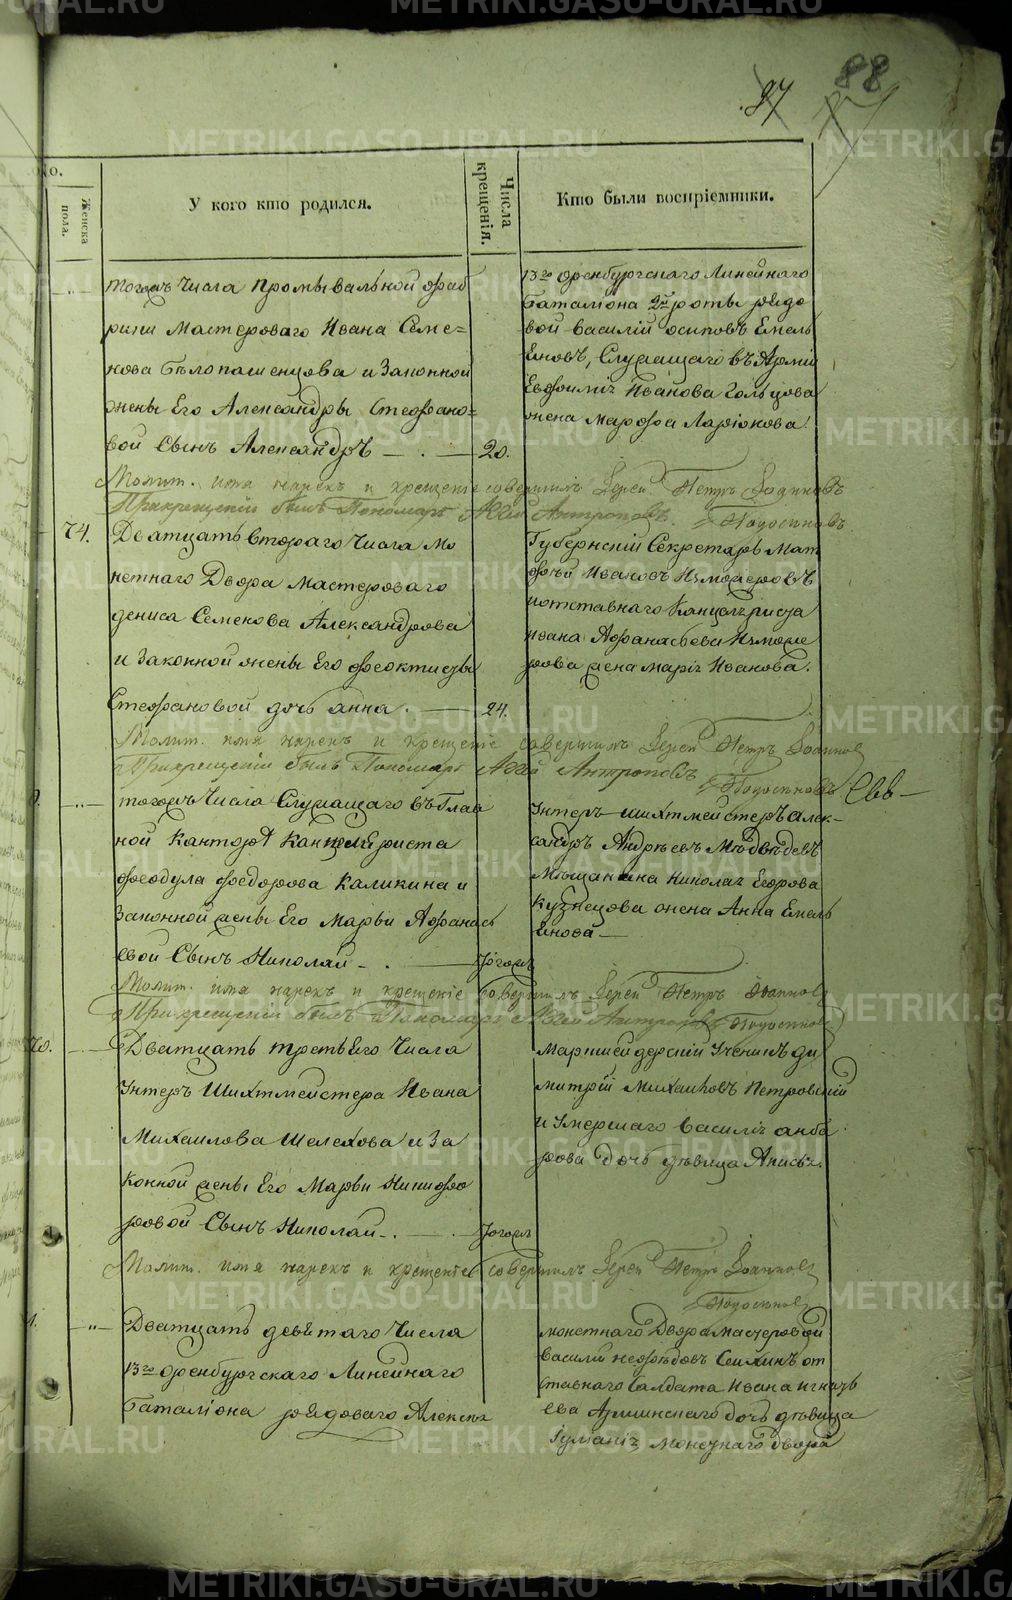 87
88
Женска пола.
У кого кто родился.
Числа крещенія.
Кто были воспріемники.
тогожъ числа Промывальной фаб
рики мастероваго Ивана Семе=
нова Бѣлопашенцова и законной
жены его Александры Стефано=
вой сынъ Александръ
20.
13го Оренбургскаго Линейнаго
Баталіона 2й роты рядо
вой Василій Осиповъ Емель
яновъ, Служащаго въ Арміи
Иванова Гольцова
жена Марфа Ларіонова.
Молит. имя нарекъ и крещеніе совершилъ Іерей Петръ
При крещеніи былъ Пономарь Аггей Антроповъ.
74.
Дватцать втораго числа Мо
нетнаго Двора мастероваго
дениса Семенова Александрова
и законной жены его Феоктисты
Стефановой дочь анна.
24.
Губернскій Секретарь Мат
фѣй Ивановъ
и отставнаго Канцеляриста
Ивана Афанасьева
жена марія Иванова.
Молит. имя нарекъ и крещеніе совершилъ Іерей Петръ Іоаннов
При крещеніи былъ Пономарь Аггей Антроповъ
тогожъ числа Служащаго въ Глав
ной Канторѣ Канцеляриста
Феодула Федорова Каликина и
законной жены его Марьи Афанась
евой Сынъ Николай
Тогож
Унтеръ шихтмейстеръ Алек-
сандръ Андрѣевъ Мѣдвѣдевъ
Мѣщанина Николая Егорова
Кузнецова жена Анна Емель
янова
Молит. имя нарекъ и крещеніе совершилъ Іерей Петръ Іоаннов
При крещеніи былъ Пономарь Аггей Антроповъ
70.
Дватцать третьего числа
Унтеръ Шихтмейстера Ивана
Михаилова Шелехова и за
конной жены его Марьи Никифо
ровой Сынъ Николай
Тогож
Маркшейдерскій Ученикъ ди
митрій Михаиловъ Петровскій
и Умершаго Василія анба
рова дочь дѣвица Анисья.
Молит. имя нарекъ и крещеніе совершилъ Іерей Петръ Іоаннов
Дватцать девятаго числа
13го Оренбургскаго Линейнаго
Баталіона рядоваго Алексѣя
монетнаго Двора мастеровой
Василій от
ставнаго Салдата Ивана Игнать
ева дочь дѣвица
Іуліанія, монетнаго двора
METRIKI.GASO-URAL.RU